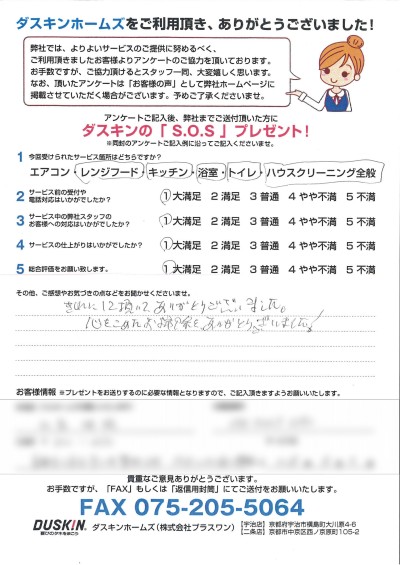 ダスキンホームズをご利用頂き、ありがとうございました！
弊社では、よりよいサービスのご提供に努めるべく、
ご利用頂きましたお客様よりアンケートのご協力を頂いております。
お手数ですが、ご協力頂けるとスタッフ一同、大変嬉しく思います。
なお、頂いたアンケートは「お客様の声」として弊社ホームページに
掲載させていただく場合がございます。予めご了承くださいませ。
アンケートご記入後、弊社までご送付頂いた方に
ダスキンの「S.O.S」プレゼント！
※同封のアンケートご記入例に沿ってご記入くださいませ。
1 今回受けられたサービス箇所はどちらですか？
エアコン・レンジフード・キッチン・浴室・トイレ・ハウスクリーニング全般
2 サービス前の受付や電話対応はいかがでしたか？ 1 大満足 2 満足 3 普通 4 やや不満 5 不満
3 サービス中の弊社スタッフのお客様への対応はいかがでしたか？ 1 大満足 2 満足 3 普通 4 やや不満 5 不満
4 サービスの仕上がりはいかがでしたか？ 1 大満足 2 満足 3 普通 4 やや不満 5 不満
5 総合評価をお願い致します。 1 大満足 2 満足 3 普通 4 やや不満 5 不満
その他、ご感想やお気づきの点などをお聞かせくださいませ。
きれいにして頂いてありがとうございました。
心をこめたお掃除をありがとうございました!
お客様情報 ※プレゼントをお送りするのに必要な情報となりますので、ご記入頂きますようお願いいたします。
貴重なご意見ありがとうございました。
お手数ですが、「FAX」もしくは「返信用封筒」にてご送付をお願いいたします。
FAX 075-205-5064
DUSKIN 喜びのタネをまこう ダスキンホームズ（株式会社プラスワン） [宇治店] 京都府宇治市槇島町大川原4-6
[二条店] 京都市中京区西ノ京原町105-2